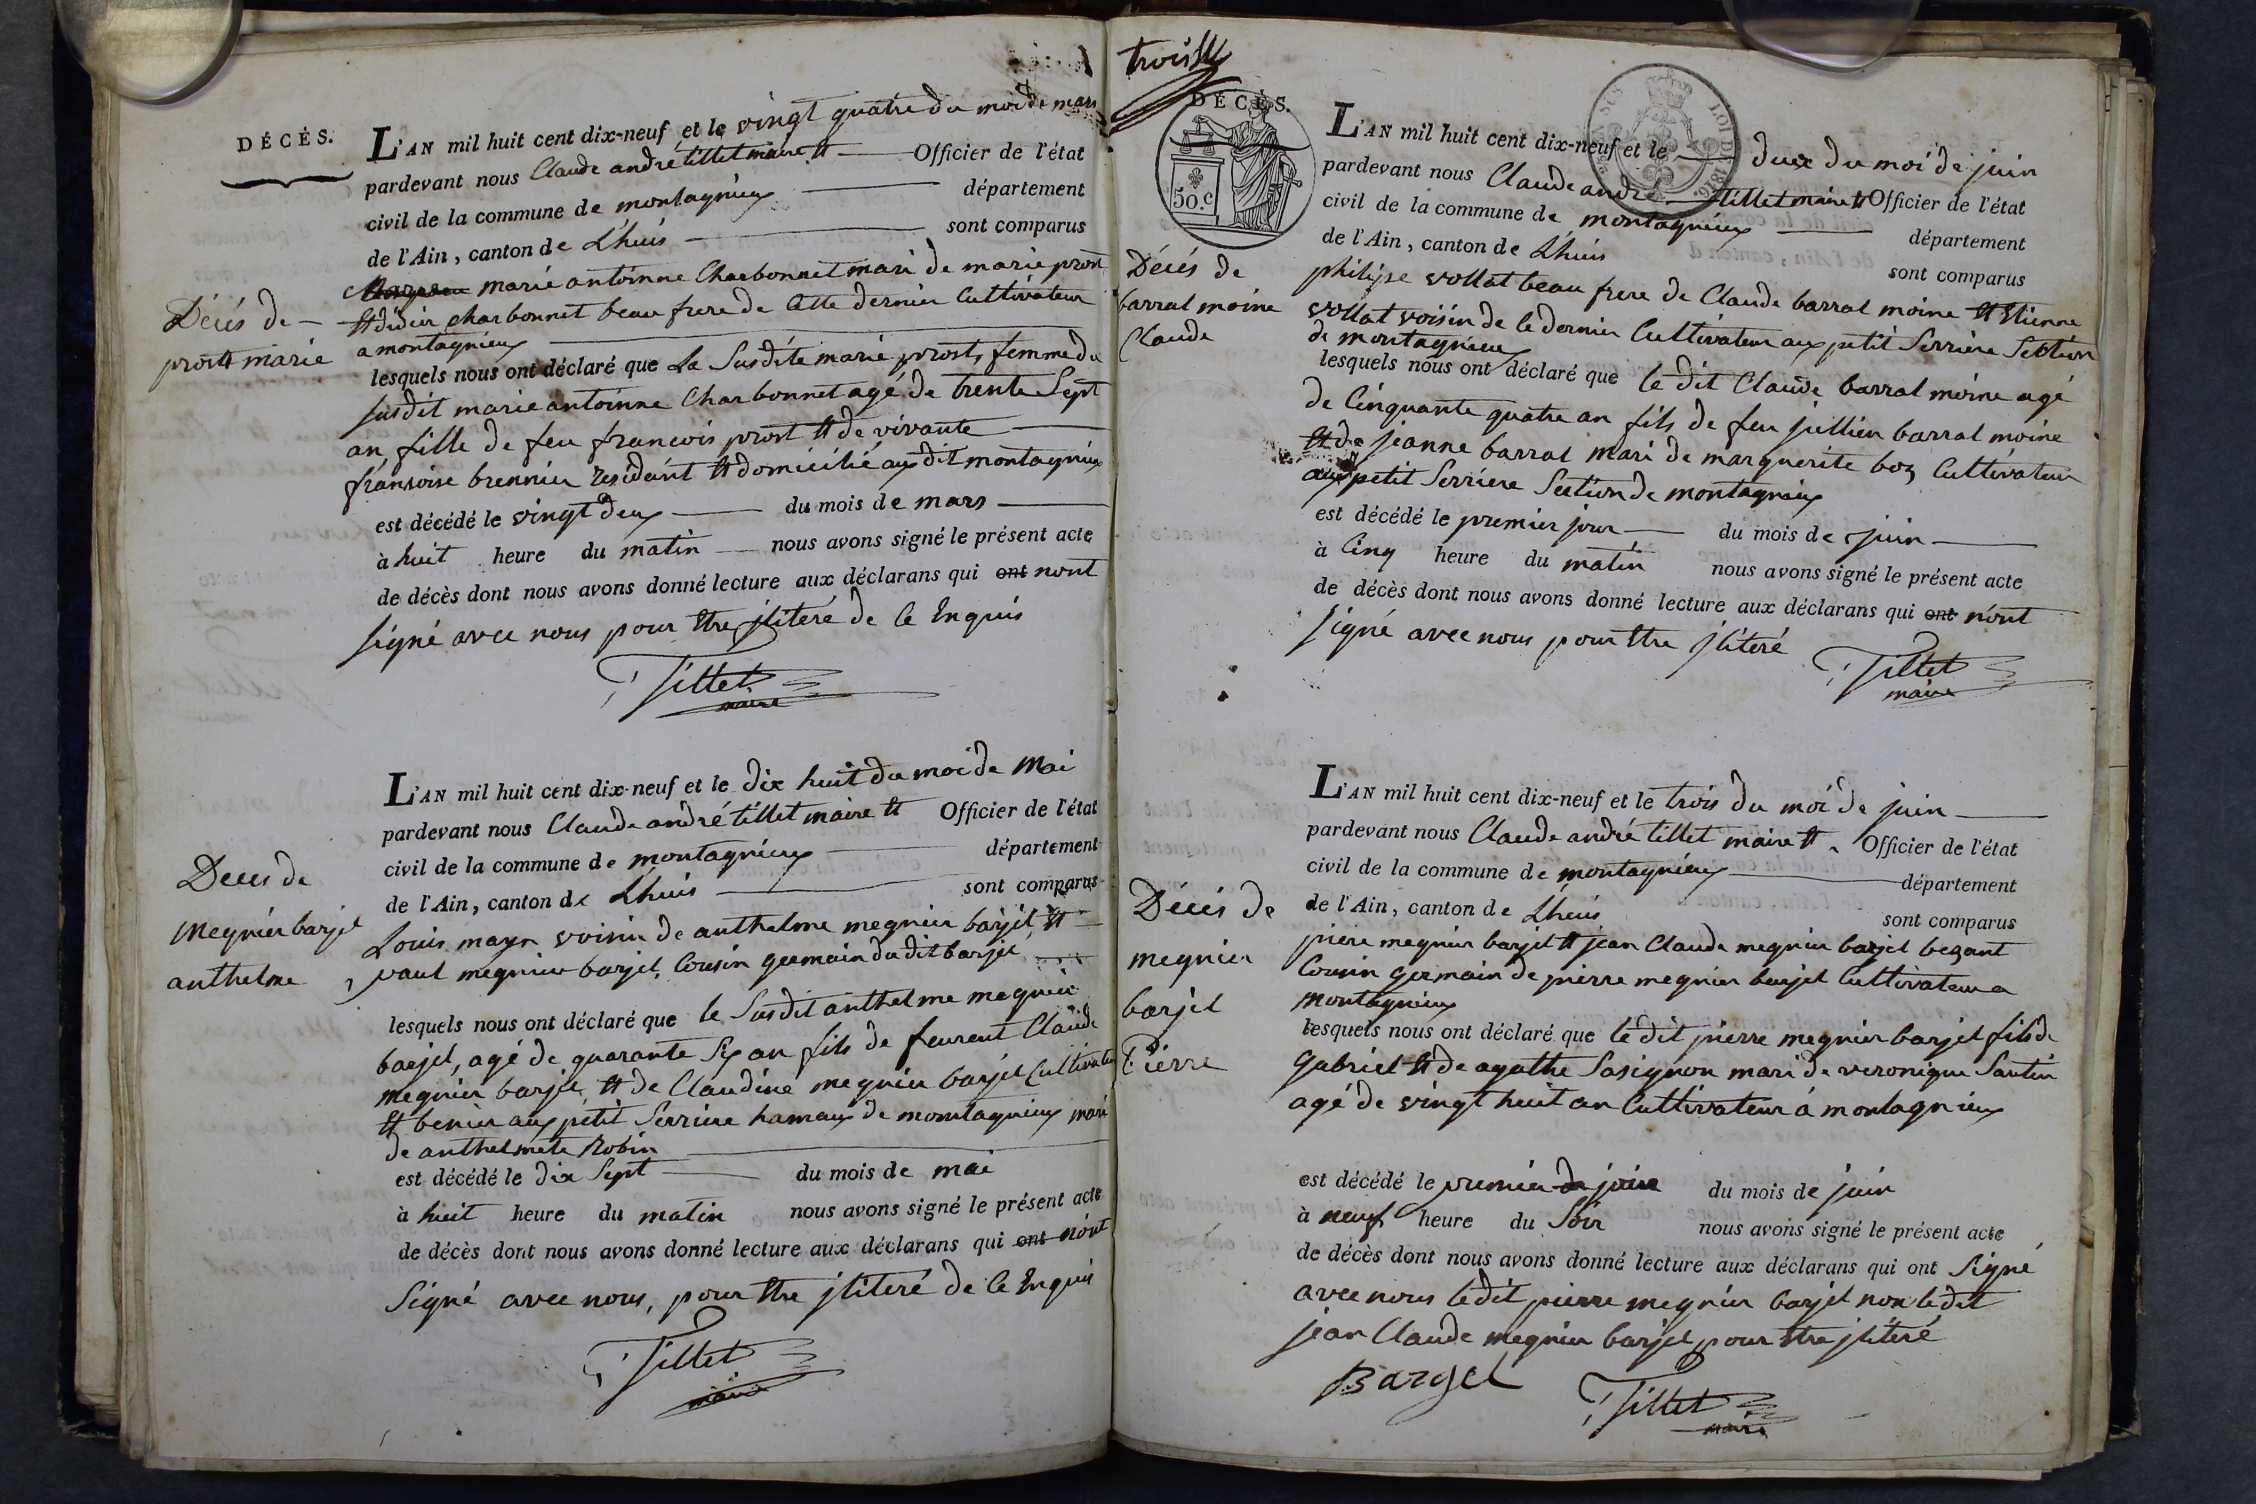 DÉCÈS.
L'AN mil huit cent dix-neuf et le vingt quatre du moi de mars
pardevant nous Claude andré tillet maire et Officier de l'état
civil de la commune de montagnieux département
de l'Ain, canton de Lhuis sont comparus
marie antoinne Charbonnet mari de marie prost
et didier charbonnet beau frere de Cette dernier Cultivateur
a montagnieux
Décés de
prost marie
lesquels nous ont déclaré que La Susdite marie prost femme du
susdit marie antoinne Charbonnet agé de trente Sept
an fille de feu francois prost et de vivante
fransoise brennier residant et domicilié aux dit montagnieux
est décédé le vingt deux du mois de mars
à huit heure du matin nous avons signé le présent acte
de décès dont nous avons donné lecture aux déclarans qui ont nont
signé avec nous pour Etre jlitéré de Ce Enquis
Tillet
maire
L'AN mil huit cent dix-neuf et le dix huit du moi de Mai
pardevant nous Claude andré tillet maire et Officier de l'état
civil de la commune de montagnieux département
de l'Ain, canton de Lhuis sont comparus
Deces de
Megnier barjet
anthelme
Louis mayn voisin de anthelme megnier barjet et
paul megnier barjet, Cousin germain du dit barjet
lesquels nous ont déclaré que le Susdit anthelme megnier
barjet, agé de quarante Six an fils de feurent Claude
megnier barjet et de Claudine megnier barjet Cultivateur
et benier aux petit Serriere hamaux de montagnieux mari
de anthelmete Robin
est décédé le dix Sept du mois de mai
à huit heure du matin nous avons signé le présent acte
de décès dont nous avons donné lecture aux déclarans qui ont n'ont
Signé avec nous, pour Etre jliteré de Ce Enquis
Tillet
maire
trois
DÉCÈS.
50.c
LOI DE 1816.
L'AN mil huit cent dix-neuf et le deux du moi de juin
pardevant nous Claude andré tillet maire et Officier de l'état
civil de la commune de montagnieux département
de l'Ain, canton de Lhuis sont comparus
Décés de
barral moine
Claude
philipe vollat beau frere de Claude barral moine et Etienne
vollat voisin de Ce dernier Cultivateur aux petit Serriere Section
de montagnieux
lesquels nous ont déclaré que le dit Claude barral moine agé
de Cinquante quatre an fils de feu jullien barral moine
et de jeanne barral mari de marguerite boz Cultivateur
aux petit Serriere Section de montagnieux
est décédé le premier jour du mois de juin
à Cinq heure du matin nous avons signé le présent acte
de décès dont nous avons donné lecture aux déclarans qui ont n'ont
signé avec nous pour Etre jlitéré
Tillet
maire
L'AN mil huit cent dix-neuf et le trois du moi de juin
pardevant nous Claude andré tillet maire et Officier de l'état
civil de la commune de montagnieux département
de l'Ain, canton de Lhuis sont comparus
Décés de
megnier
barjet
Pierre
piere megnier barjet et jean Claude megnier barjet bezant
Cousin germain de pierre megnier barjet Cultivateur a
montagnieux
lesquels nous ont déclaré que le dit pierre megnier barjet fils de
Gabriel et de agathe Sasignon mari de veronique Santin
agé de vingt huit an Cultivateur á montagnieux
est décédé le premier de juin du mois de juin
à neuf heure du Soir nous avons signé le présent acte
de décès dont nous avons donné lecture aux déclarans qui ont Signé
avec nous le dit pierre megnier barjet non le dit
jean Claude megnier barjet pour Etre jlitéré
Bargel
Tillet
maire